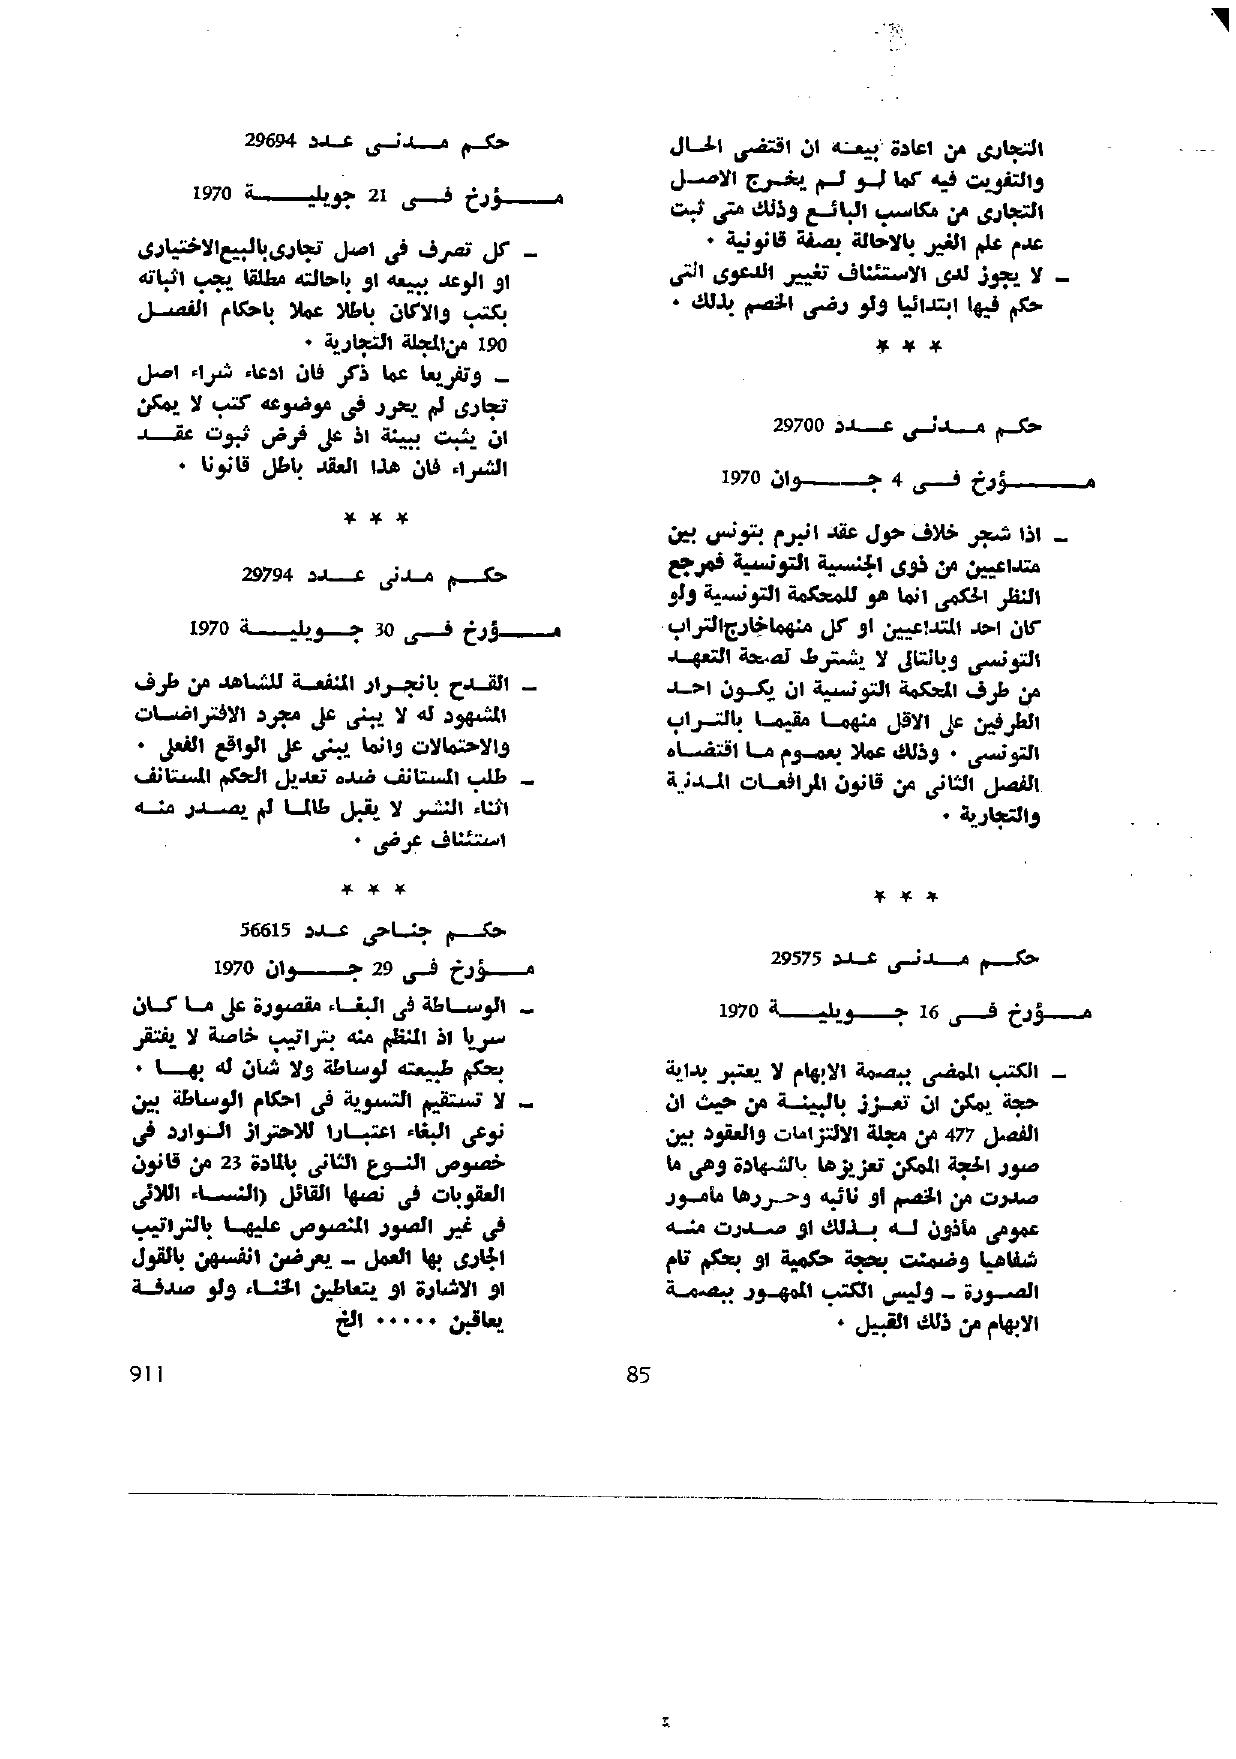 التجارى من اعادة بيعه ان اقتضى الحال
والتفويت فيه كما لو لم يخرج الاصل
التجارى من مكاسب البائع وذلك متى ثبت
عدم علم الغير بالاحالة بصفة قانونية .
– لا يجوز لدى الاستئناف تغيير الدعوى التى
حكم فيها ابتدائيا ولو رضى الخصم بذلك .
* * *
حكم مدنى عدد 29700
مؤرخ فى 4 جوان 1970
– اذا شجر خلاف حول عقد انبرم بتونس بين
متداعيين من ذوى الجنسية التونسية فمرجع
النظر الحكمى انما هو للمحكمة التونسية ولو
كان احد المتداعيين او كل منهما خارج التراب
التونسى وبالتالى لا يشترط لصحة التعهد
من طرف المحكمة التونسية ان يكون احد
الطرفين على الاقل منهما مقيما بالتراب
التونسى . وذلك عملا بعموم ما اقتضاه
الفصل الثانى من قانون المرافعات المدنية
والتجارية .
* * *
حكم مدنى عدد 29575
مؤرخ فى 16 جويلية 1970
– الكتب الممضى ببصمة الابهام لا يعتبر بداية
حجة يمكن ان تعزز بالبينة من حيث ان
الفصل 477 من مجلة الالتزامات والعقود بين
صور الحجة الممكن تعزيزها بالشهادة وهى ما
صدرت من الخصم أو نائبه وحررها مامور
عمومى ماذون له بذلك او صدرت منه
شفاهيا وضمنت بحجة حكمية او بحكم تام
الصورة – وليس الكتب الممهور ببصمة
الابهام من ذلك القبيل .
حكم مدنى عدد 29694
مؤرخ فى 21 جويلية 1970
– كل تصرف فى اصل تجارى بالبيع الاختيارى
او الوعد ببيعه او باحالته مطلقا يجب اثباته
بكتب والاكان باطلا عملا باحكام الفصل
190 من المجلة التجارية .
– وتفريعا عما ذكر فان ادعاء شراء اصل
تجارى لم يحرر فى موضوعه كتب لا يمكن
ان يثبت ببينة اذ على فرض ثبوت عقد
الشراء فان هذا العقد باطل قانونا .
* * *
حكم مدنى عدد 29794
مؤرخ فى 30 جويلية 1970
– القدح بانجرار المنفعة للشاهد من طرف
المشهود له لا يبنى على مجرد الافتراضات
والاحتمالات وانما يبنى على الواقع الفعلى .
– طلب المستانف ضده تعديل الحكم المستانف
اثناء النشر لا يقبل طالما لم يصدر منه
استئناف عرضى .
* * *
حكم جناحى عدد 56615
مؤرخ فى 29 جوان 1970
– الوساطة فى البغاء مقصورة على ما كان
سريا اذ المنظم منه بتراتيب خاصة لا يفتقر
بحكم طبيعته لوساطة ولا شان له بها .
– لا تستقيم التسوية فى احكام الوساطة بين
نوعى البغاء اعتبارا للاحتراز الوارد فى
خصوص النوع الثانى بالمادة 23 من قانون
العقوبات فى نصها القائل (النساء اللائى
فى غير الصور المنصوص عليها بالتراتيب
الجارى بها العمل – يعرضن انفسهن بالقول
او الاشارة او يتعاطين الخناء ولو صدفة
يعاقبن ..... الخ
85
911